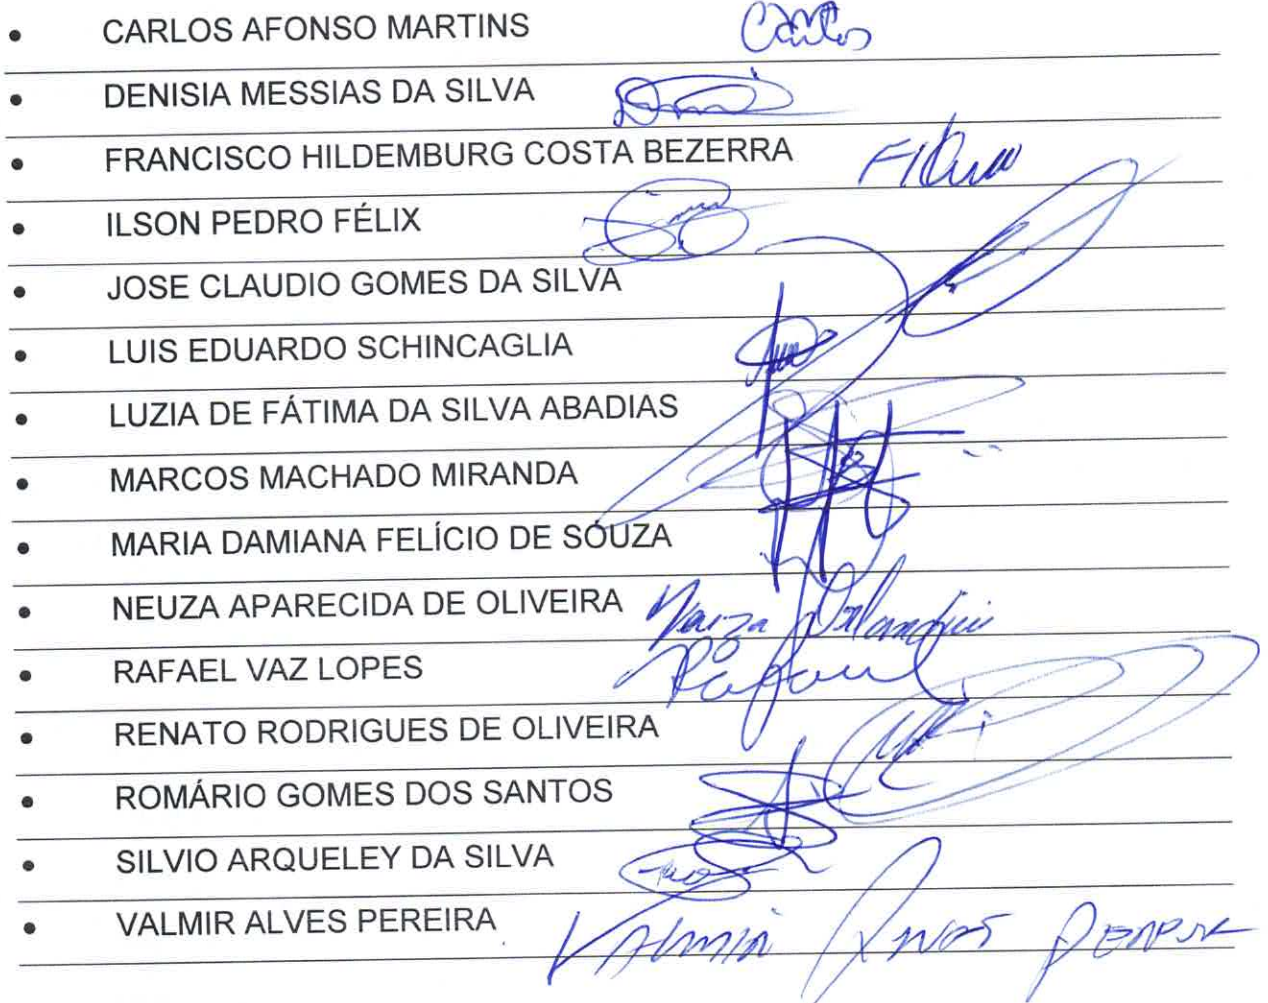 • CARLOS AFONSO MARTINS Carlos
• DENISIA MESSIAS DA SILVA
• FRANCISCO HILDEMBURG COSTA BEZERRA
• ILSON PEDRO FÉLIX
• JOSE CLAUDIO GOMES DA SILVA
• LUIS EDUARDO SCHINCAGLIA
• LUZIA DE FÁTIMA DA SILVA ABADIAS
• MARCOS MACHADO MIRANDA
• MARIA DAMIANA FELÍCIO DE SOUZA
• NEUZA APARECIDA DE OLIVEIRA
• RAFAEL VAZ LOPES Rafael
• RENATO RODRIGUES DE OLIVEIRA
• ROMÁRIO GOMES DOS SANTOS
• SILVIO ARQUELEY DA SILVA
• VALMIR ALVES PEREIRA VALMIR